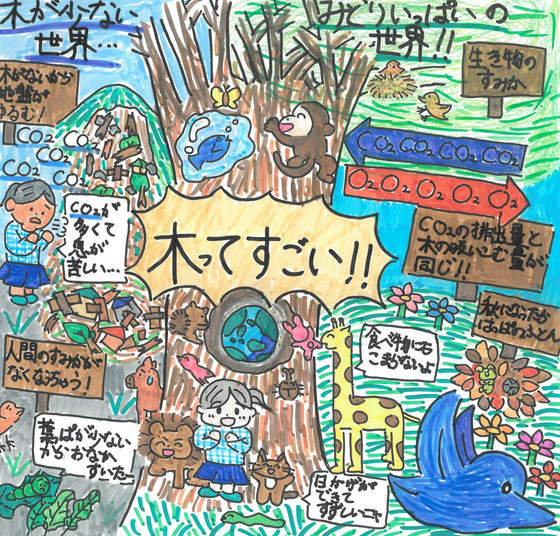 木が少ない
世界…
みどりいっぱいの
世界!!
生き物の
すみか
木がないから
地盤が
ゆるむ!
CO₂
CO₂
CO₂
CO₂
CO₂
CO₂ CO₂ CO₂ CO₂
O₂ O₂ O₂ O₂ O₂
CO₂が
多くて
息が
苦しい…
木ってすごい!!
CO₂の排出量と
木の吸いこむ量が
同じ!!
秋になったら
はっぱおふとん
人間のすみかが
なくなちゃう!
食べ物にも
こまらないよ
葉っぱが少ない
からおなか
すいた…
日かげが
できて
すずしいニャ